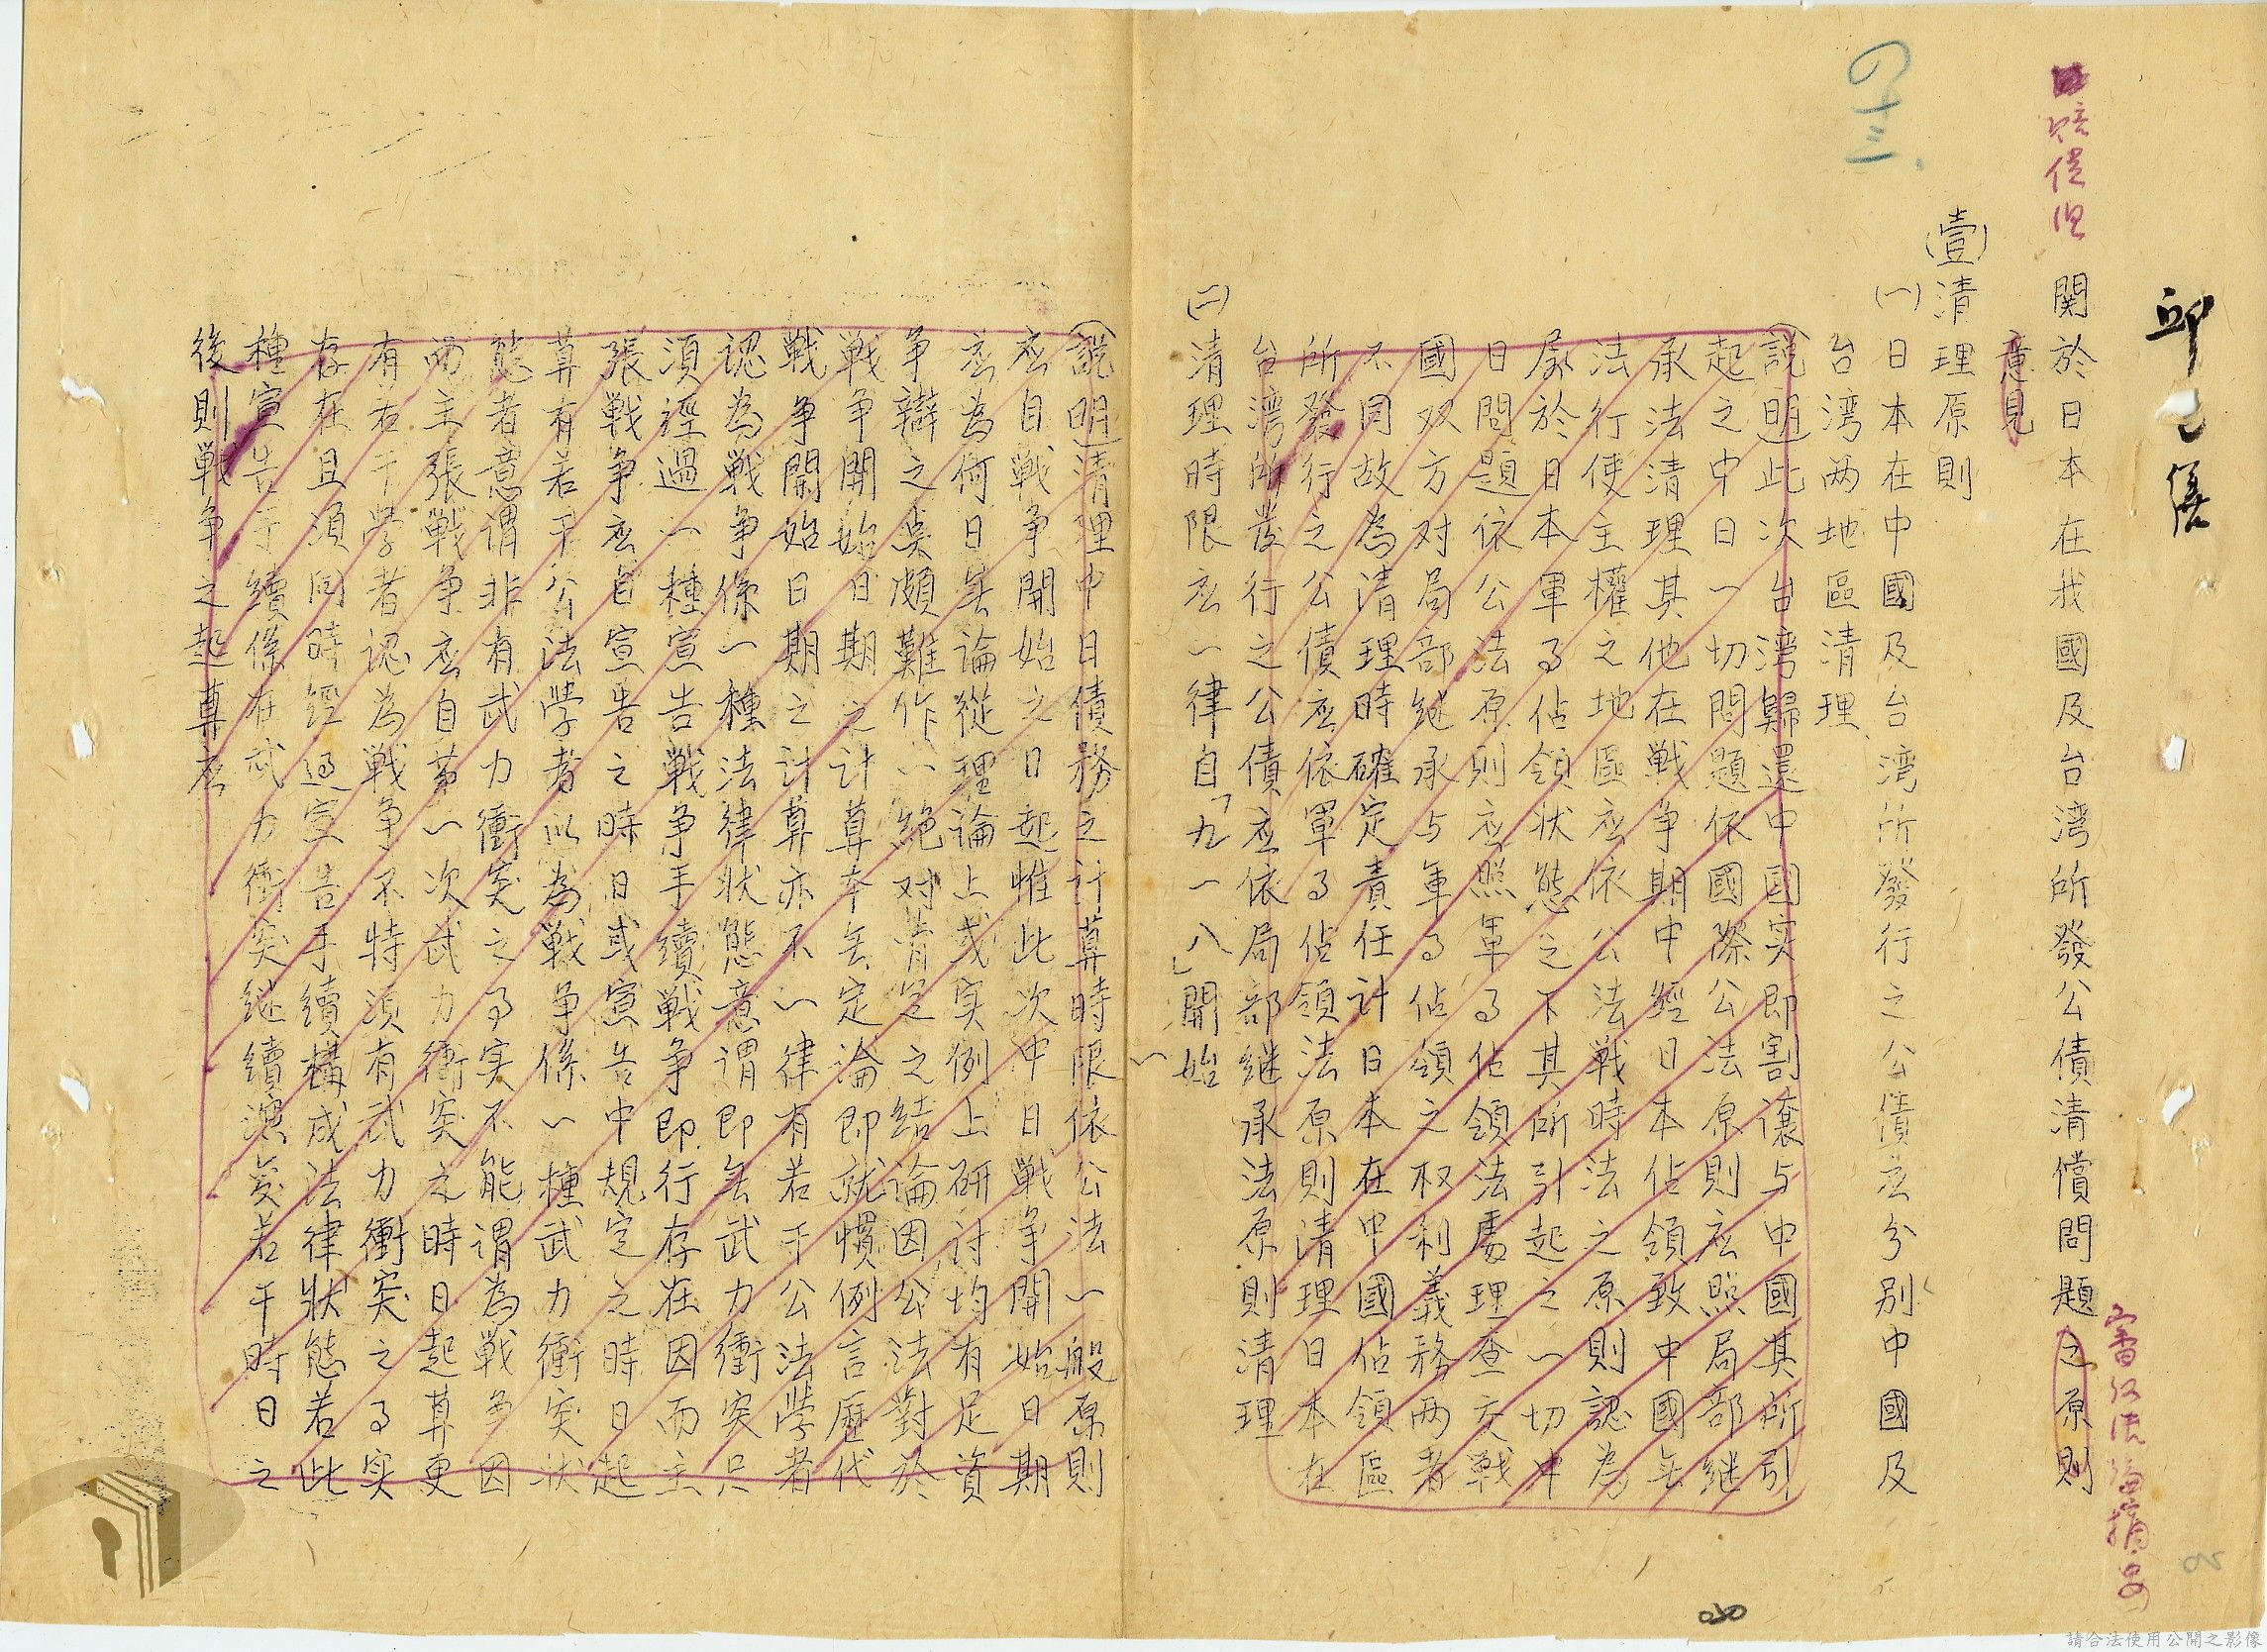 賠償
関於日本在我國及台湾所發公債清償問題之原則
意見
(壹)清理原則
(一)日本在中國及台湾所發行之公債应分別中國及
台湾两地區清理
(說明)此次台湾歸還中國实即割讓与中國其所引
起之中日一切問題依國際公法原則应照局部継
承法清理其他在戦争期中經日本佔領致中國無
法行使主權之地區应依公法戦時法之原則認為
屬於日本軍事佔領状態之下其所引起之一切中
日問題依公法原則应照軍事佔領法處理查交戦
國双方对局部継承与軍事佔領之权利義務两者
不同故為清理時確定責任計日本在中國佔領區
所發行之公債应依軍事佔領法原則清理日本在
台湾所發行之公債应依局部継承法原則清理
(二)清理時限应一律自「九一八」開始
(說明)清理中日債務之計算時限依公法一般原則
应自戦争開始之日起惟此次中日戦争開始日期
应為何日無論從理論上或实例上研討均有足資
争辯之点頗難作一絕对肯定之結論因公法對於
戦争開始日期之计算本無定論即就慣例言歷代
戦争開始日期之计算亦不一律有若干公法學者
認為戦争係一種法律状態意谓即無武力衝突只
須經過一種宣告戦争手續戦争即行存在因而主
張戦争应自宣告之時日或宣告中規定之時日起
算有若干公法學者以為戦争係一種武力衝突状
態者意谓非有武力衝突之事实不能谓為戦争因
而主張戦争应自第一次武力衝突之時日起算更
有若干學者認為戦争不特須有武力衝突之事实
存在且須同時經過宣告手續構成法律狀態若此
種宣告手續係在武力衝突継續演変若干時日之
後則戦争之起算应